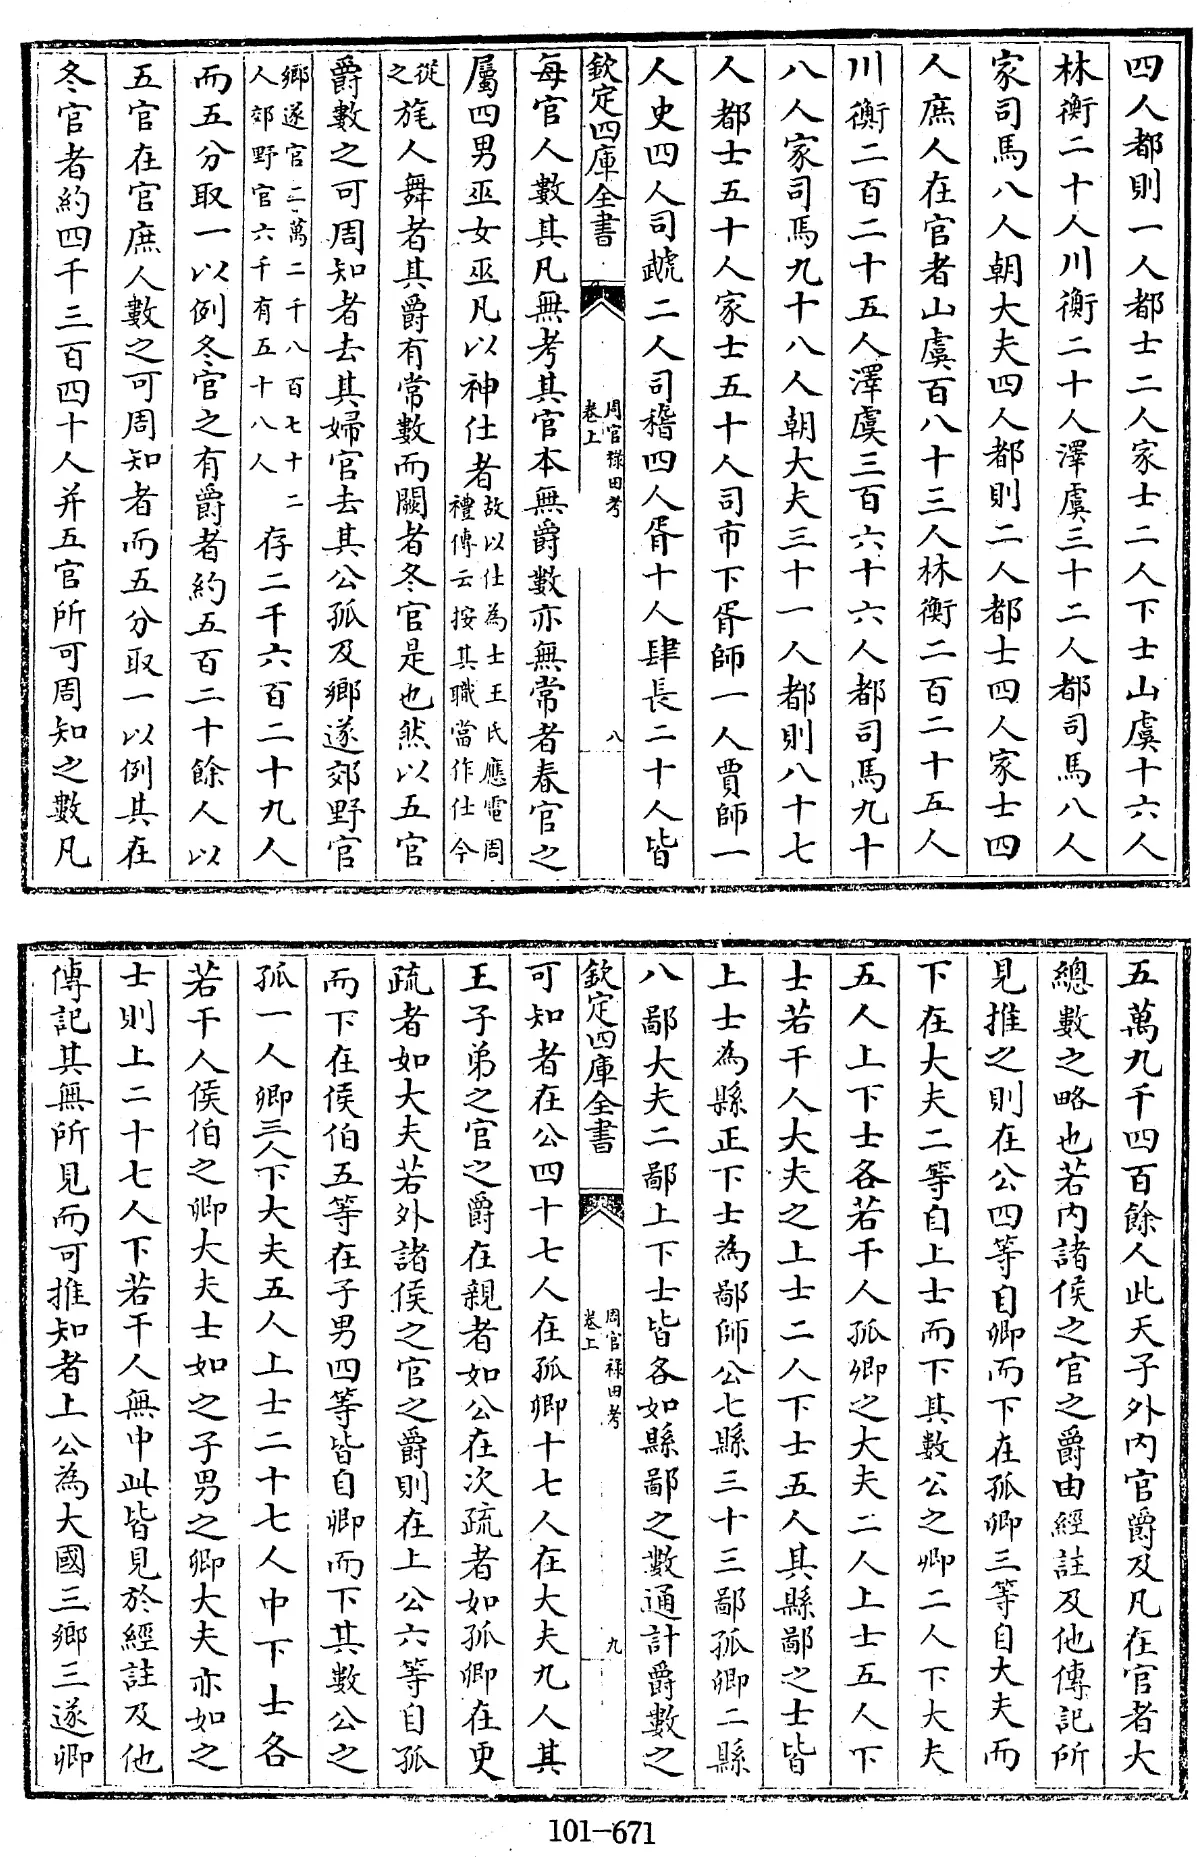 四人都則一人都士二人家士二人下士山虞十六人
林衡二十人川衡二十人澤虞三十二人都司馬八人
家司馬八人朝大夫四人都則二人都士四人家士四
人庶人在官者山虞百八十三人林衡二百二十五人
川衡二百二十五人澤虞三百六十六人都司馬九十
八人家司馬九十八人朝大夫三十一人都則八十七
人都士五十人家士五十人司市下胥師一人賈師一
人史四人司虣二人司稽四人胥十人肆長二十人皆
欽定四庫全書
周官祿田考
卷上
八
每官人數其凡無考其官本無爵數亦無常者春官之
屬四男巫女巫凡以神仕者故以仕為士王氏應電周
禮傳云按其職當作仕今
從
之旄人舞者其爵有常數而闕者冬官是也然以五官
爵數之可周知者去其婦官去其公孤及鄉遂郊野官
鄉遂官二萬二千八百七十二
人郊野官六千有五十八人存二千六百二十九人
而五分取一以例冬官之有爵者約五百二十餘人以
五官在官庶人數之可周知者而五分取一以例其在
冬官者約四千三百四十人并五官所可周知之數凡
五萬九千四百餘人此天子外內官爵及凡在官者大
總數之略也若內諸侯之官之爵由經註及他傳記所
見推之則在公四等自卿而下在孤卿三等自大夫而
下在大夫二等自上士而下其數公之卿二人下大夫
五人上下士各若干人孤卿之大夫二人上士五人下
士若干人大夫之上士二人下士五人其縣鄙之士皆
上士為縣正下士為鄙師公七縣三十三鄙孤卿二縣
八鄙大夫二鄙上下士皆各如縣鄙之數通計爵數之
欽定四庫全書
周官祿田考
卷上
九
可知者在公四十七人在孤卿十七人在大夫九人其
王子弟之官之爵在親者如公在次疏者如孤卿在更
疏者如大夫若外諸侯之官之爵則在上公六等自孤
而下在侯伯五等在子男四等皆自卿而下其數公之
孤一人卿三人下大夫五人上士二十七人中下士各
若干人侯伯之卿大夫士如之子男之卿大夫亦如之
士則上二十七人下若干人無中此皆見於經註及他
傳記其無所見而可推知者上公為大國三鄉三遂卿
101-671